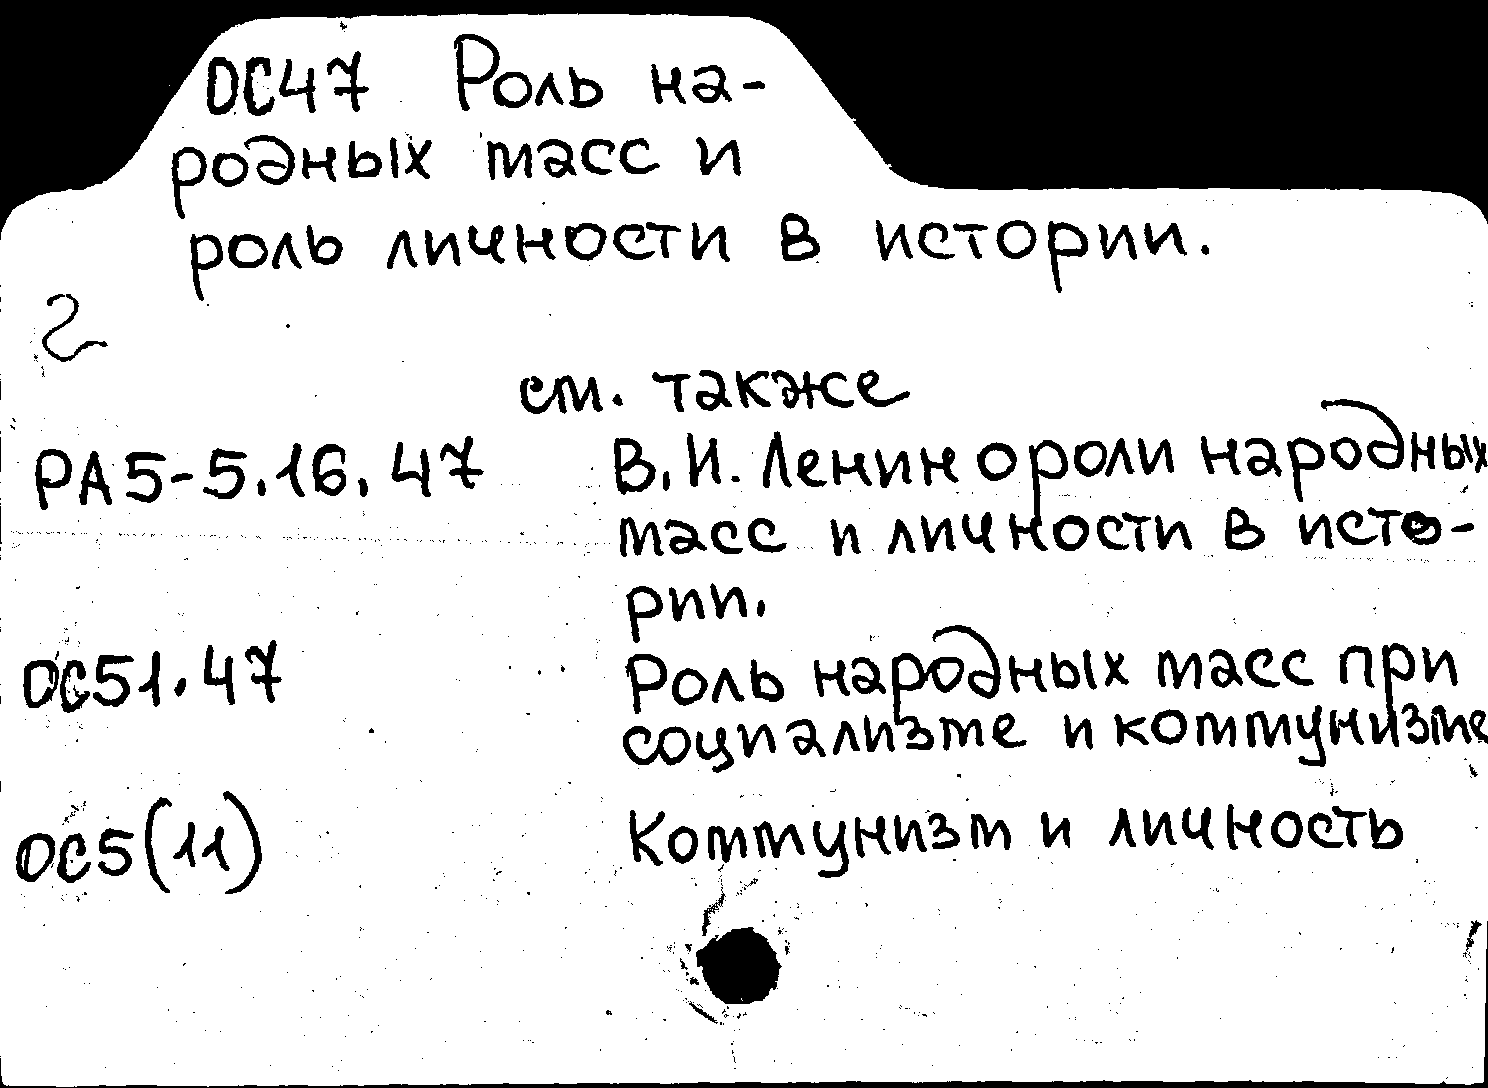 ОС47 Роль на-
родных масс и
роль личности в истории.
2
см. также
РА5-5.16.47 В.И. Ленин о роли народных
масс и личности в исто-
рии.
ОС51.47 Роль народных масс при
социализме и коммунизме
ОС5(11) Коммунизм и личность